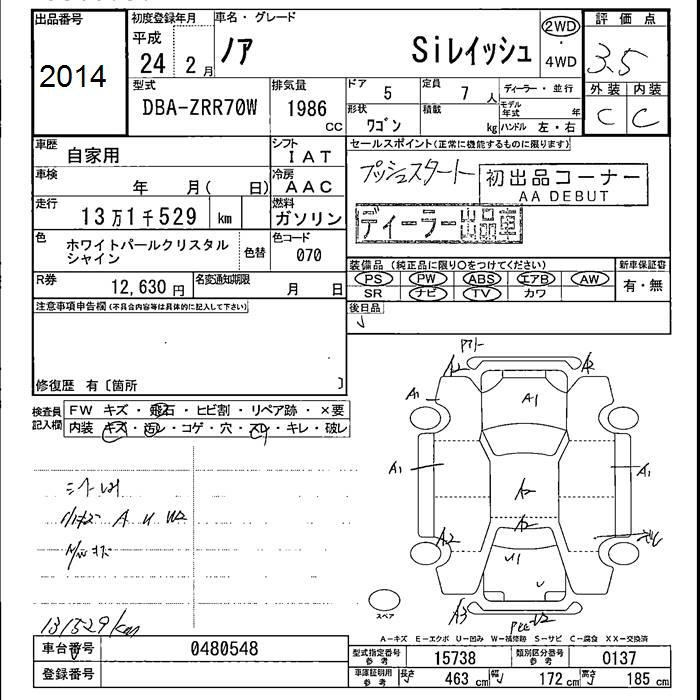 出品番号
2014
初度登録年月
平成
24 2月
車名・グレード
ノア Siレイッシュ
2WD
・
4WD
評価点
3.5
外装 内装
C C
型式
DBA-ZRR70W
排気量
1986
CC
ドア 5
定員 7 人
ディーラー・並行
モデル年式 年
形状 ワゴン
積載 kg
ハンドル 左・右
車歴 自家用
シフト IAT
車検 年 月( 日)
冷房 AAC
走行 13万1千529 km
燃料 ガソリン
色 ホワイトパールクリスタルシャイン
色替
色コード 070
R券 12,630円
名変通知期限 月 日
セールスポイント(正常に機能するものに限ります)
プッシュスタート
初出品コーナー
AA DEBUT
ディーラー出品車
装備品(純正品に限り○をつけてください)
PS PW ABS エアB AW
SR ナビ TV カワ
新車保証書
有・無
後日品
注意事項申告欄(不具合内容等は具体的に記入して下さい)
修復歴 有〔箇所 〕
検査員記入欄
FW キズ・飛石・ヒビ割・リペア跡・×要
内装 キズ・汚レ・コゲ・穴・スレ・キレ・破レ
A U W2
131529km
A1
A2
A1
A1
A1
A1
A2
A2
A2
U1
A3
スペア
A-キズ E-エクボ U-凹み W-補修跡 S-サビ C-腐食 XX-交換済
車台番号 0480548
登録番号
型式指定番号 参考 15738
類別区分番号 参考 0137
車庫証明用 参考 長さ 463cm 幅 172cm 高さ 185cm